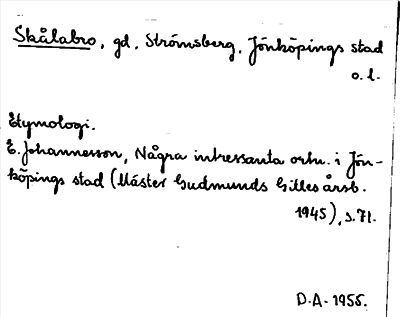 Skålabro, gd, Strömsberg, Jönköpings stad
o. l.
Etymologi.
E. Johannesson, Några intressanta ortn. i Jön-
köpings stad (Mäster Gudmunds Gilles årsb.
1945), s. 71.
D.A. 1955.